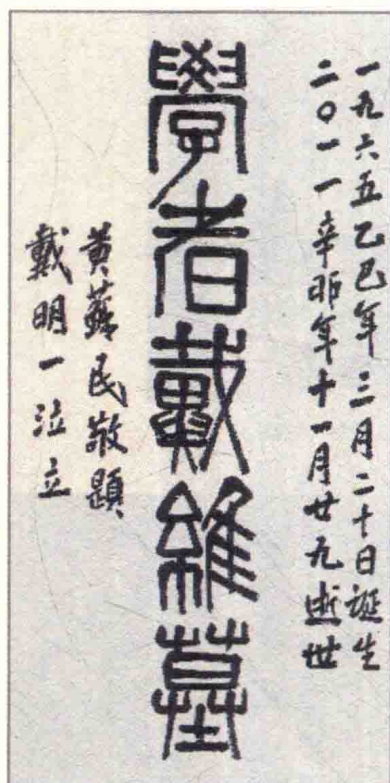 一九六五乙巳年三月二十日誕生
二〇一一辛卯年十一月廿九逝世
學者戴維墓
黃蘇民敬題
戴明一泣立